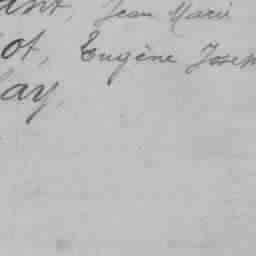 ant, Jean Marie
ot, Eugène Josep
ay,